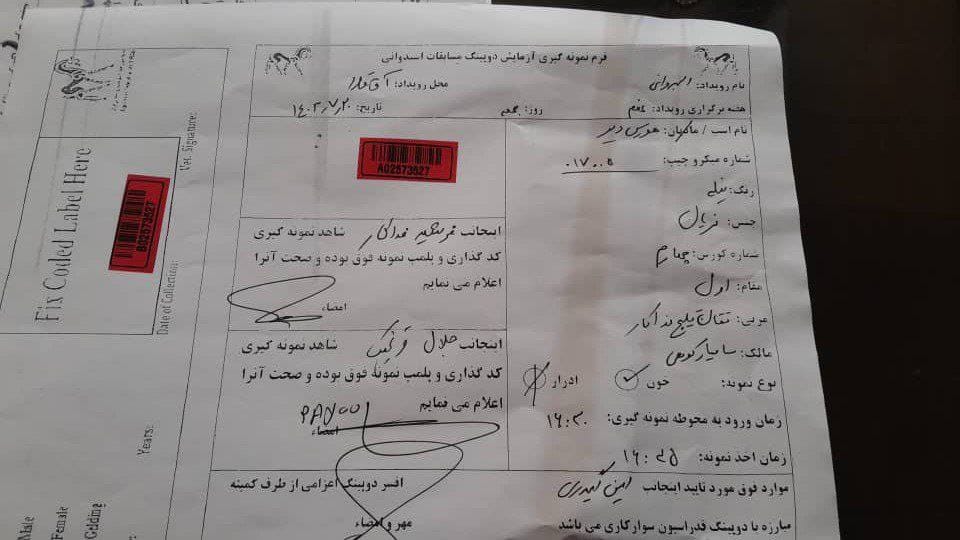 فرم نمونه گیری آزمایش دوپینگ مسابقات اسبدوانی
نام رویداد: اسبدوانی
محل رویداد: آق قلا
هفته برگزاری رویداد: هفتم
روز: جمعه
تاریخ: ۱۴۰۲/۷/۲۰
نام اسب / مادیان:
شماره میکرو چیپ: ۰۱۷۰۰۵
رنگ: نیله
جنس: نریان
شماره کورس: چهارم
مقام: اول
مربی:
مالک:
نوع نمونه: خون ادرار
زمان ورود به محوطه نمونه گیری: ۱۶:۳۰
زمان اخذ نمونه: ۱۶:۴۵
A02573527
اینجانب شاهد نمونه گیری
کد گذاری و پلمب نمونه فوق بوده و صحت آنرا
اعلام می نمایم
امضاء
اینجانب جلال شاهد نمونه گیری
کد گذاری و پلمب نمونه فوق بوده و صحت آنرا
اعلام می نمایم
امضاء
موارد فوق مورد تایید اینجانب افسر دوپینگ اعزامی از طرف کمیته
مبارزه با دوپینگ فدراسیون سوارکاری می باشد
مهر و امضاء
Fix Coded Label Here
B02573527
Vet. Signature:
Date of Collection:
Years:
Male
Female
Gelding